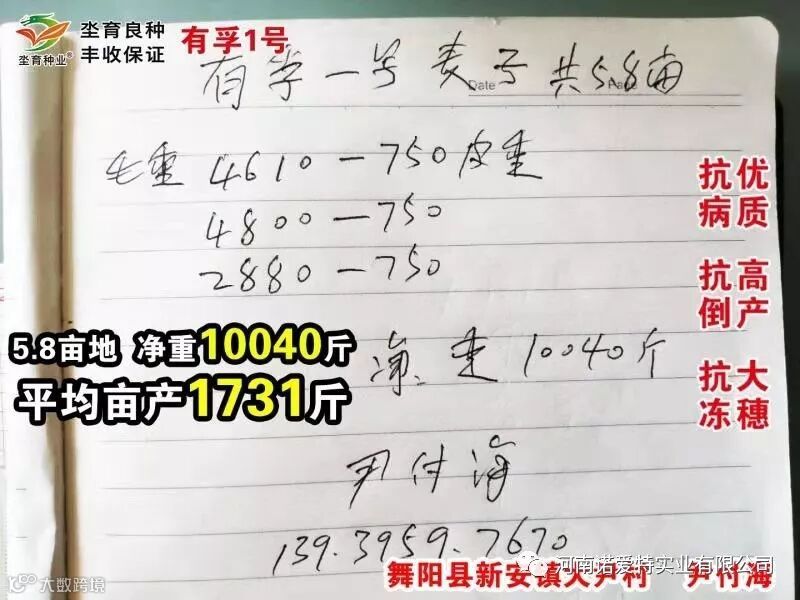 坔育种业®
坔育良种
丰收保证
有孚1号
有孚一号 麦子 共5.8亩
Date
Page
毛重 4610-750皮重
4800-750
2880-750
优质
抗病
高产
抗倒
大穗
抗冻
5.8亩地 净重10040斤
平均亩产1731斤
净重 10040斤
尹付海
139.3959.7670
河南诺爱特实业有限公司
舞阳县新安镇大尹村 尹付海
大数跨境